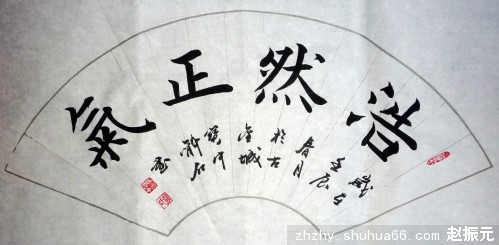 浩然正氣
歲在
壬辰
春月
於古
金城
寶中
書
zhzhy.shuhua66.com 赵振元